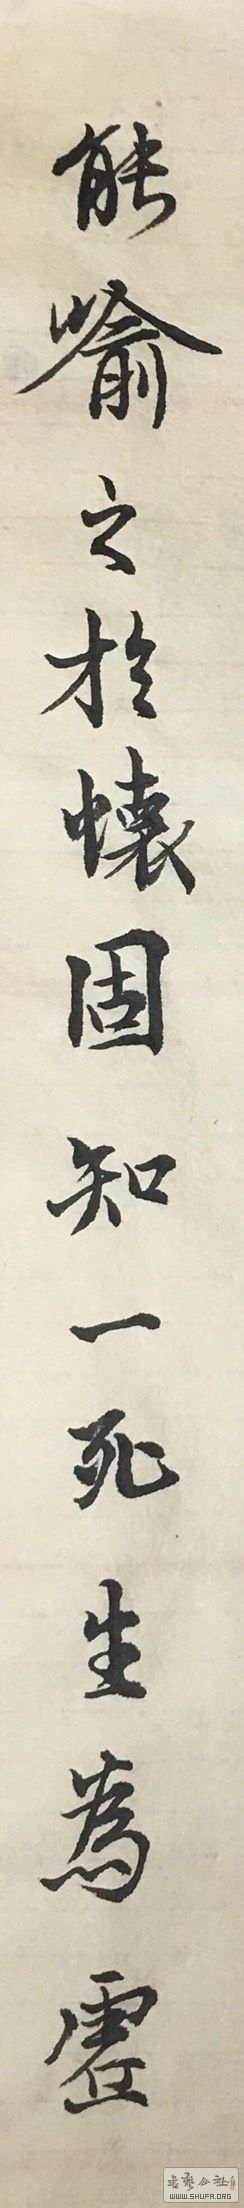 能喻之於懷固知一死生為虛
书艺公社
WWW.SHUFA.ORG